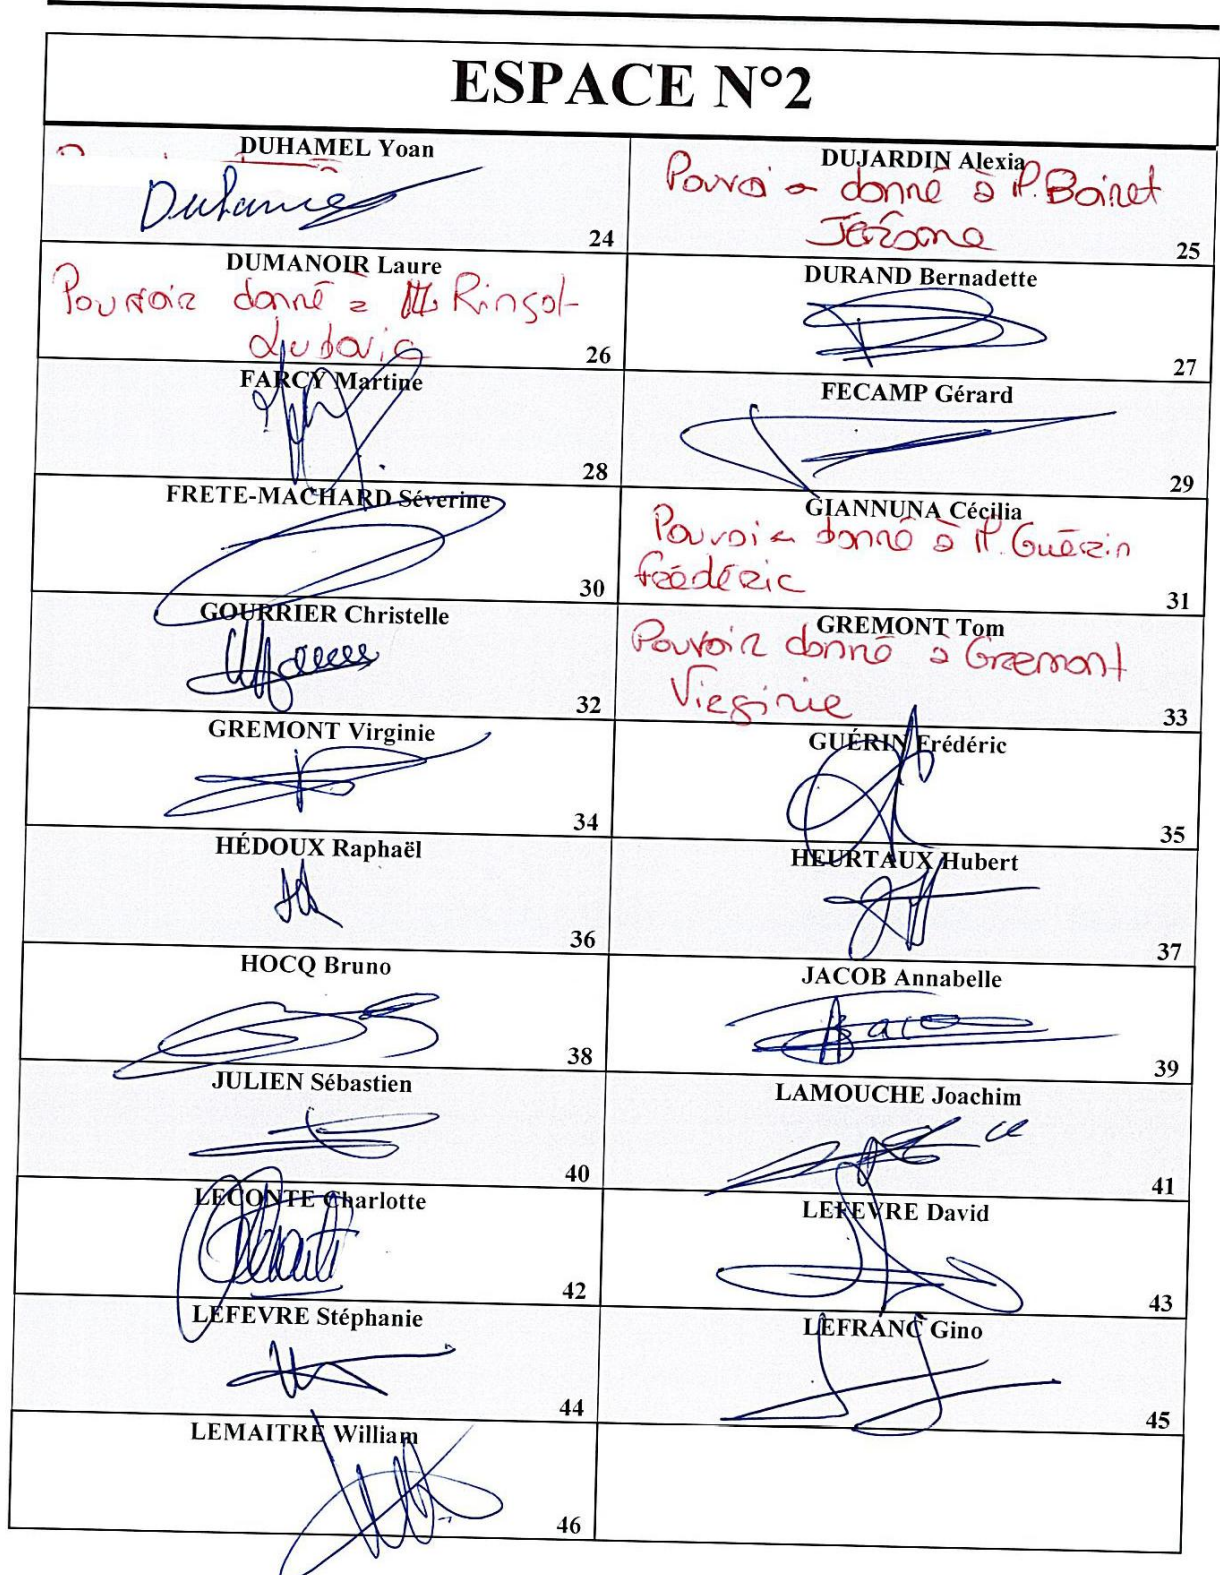 ESPACE N°2
DUHAMEL Yoan
Duhamel
24
DUJARDIN Alexia
Pouvoir donné à M. Boinet
Jérôme
25
DUMANOIR Laure
Pouvoir donné à M. Ringot
Ludovic
26
DURAND Bernadette
27
FARCY Martine
28
FECAMP Gérard
29
FRETE-MACHARD Séverine
30
GIANNUNA Cécilia
Pouvoir donné à M. Guérin
Frédéric
31
GOURRIER Christelle
32
GREMONT Tom
Pouvoir donné à Gremont
Virginie
33
GREMONT Virginie
34
GUÉRIN Frédéric
35
HÉDOUX Raphaël
36
HEURTAUX Hubert
37
HOCQ Bruno
38
JACOB Annabelle
39
JULIEN Sébastien
40
LAMOUCHE Joachim
41
LECONTE Charlotte
42
LEFEVRE David
43
LEFEVRE Stéphanie
44
LEFRANC Gino
45
LEMAITRE William
46